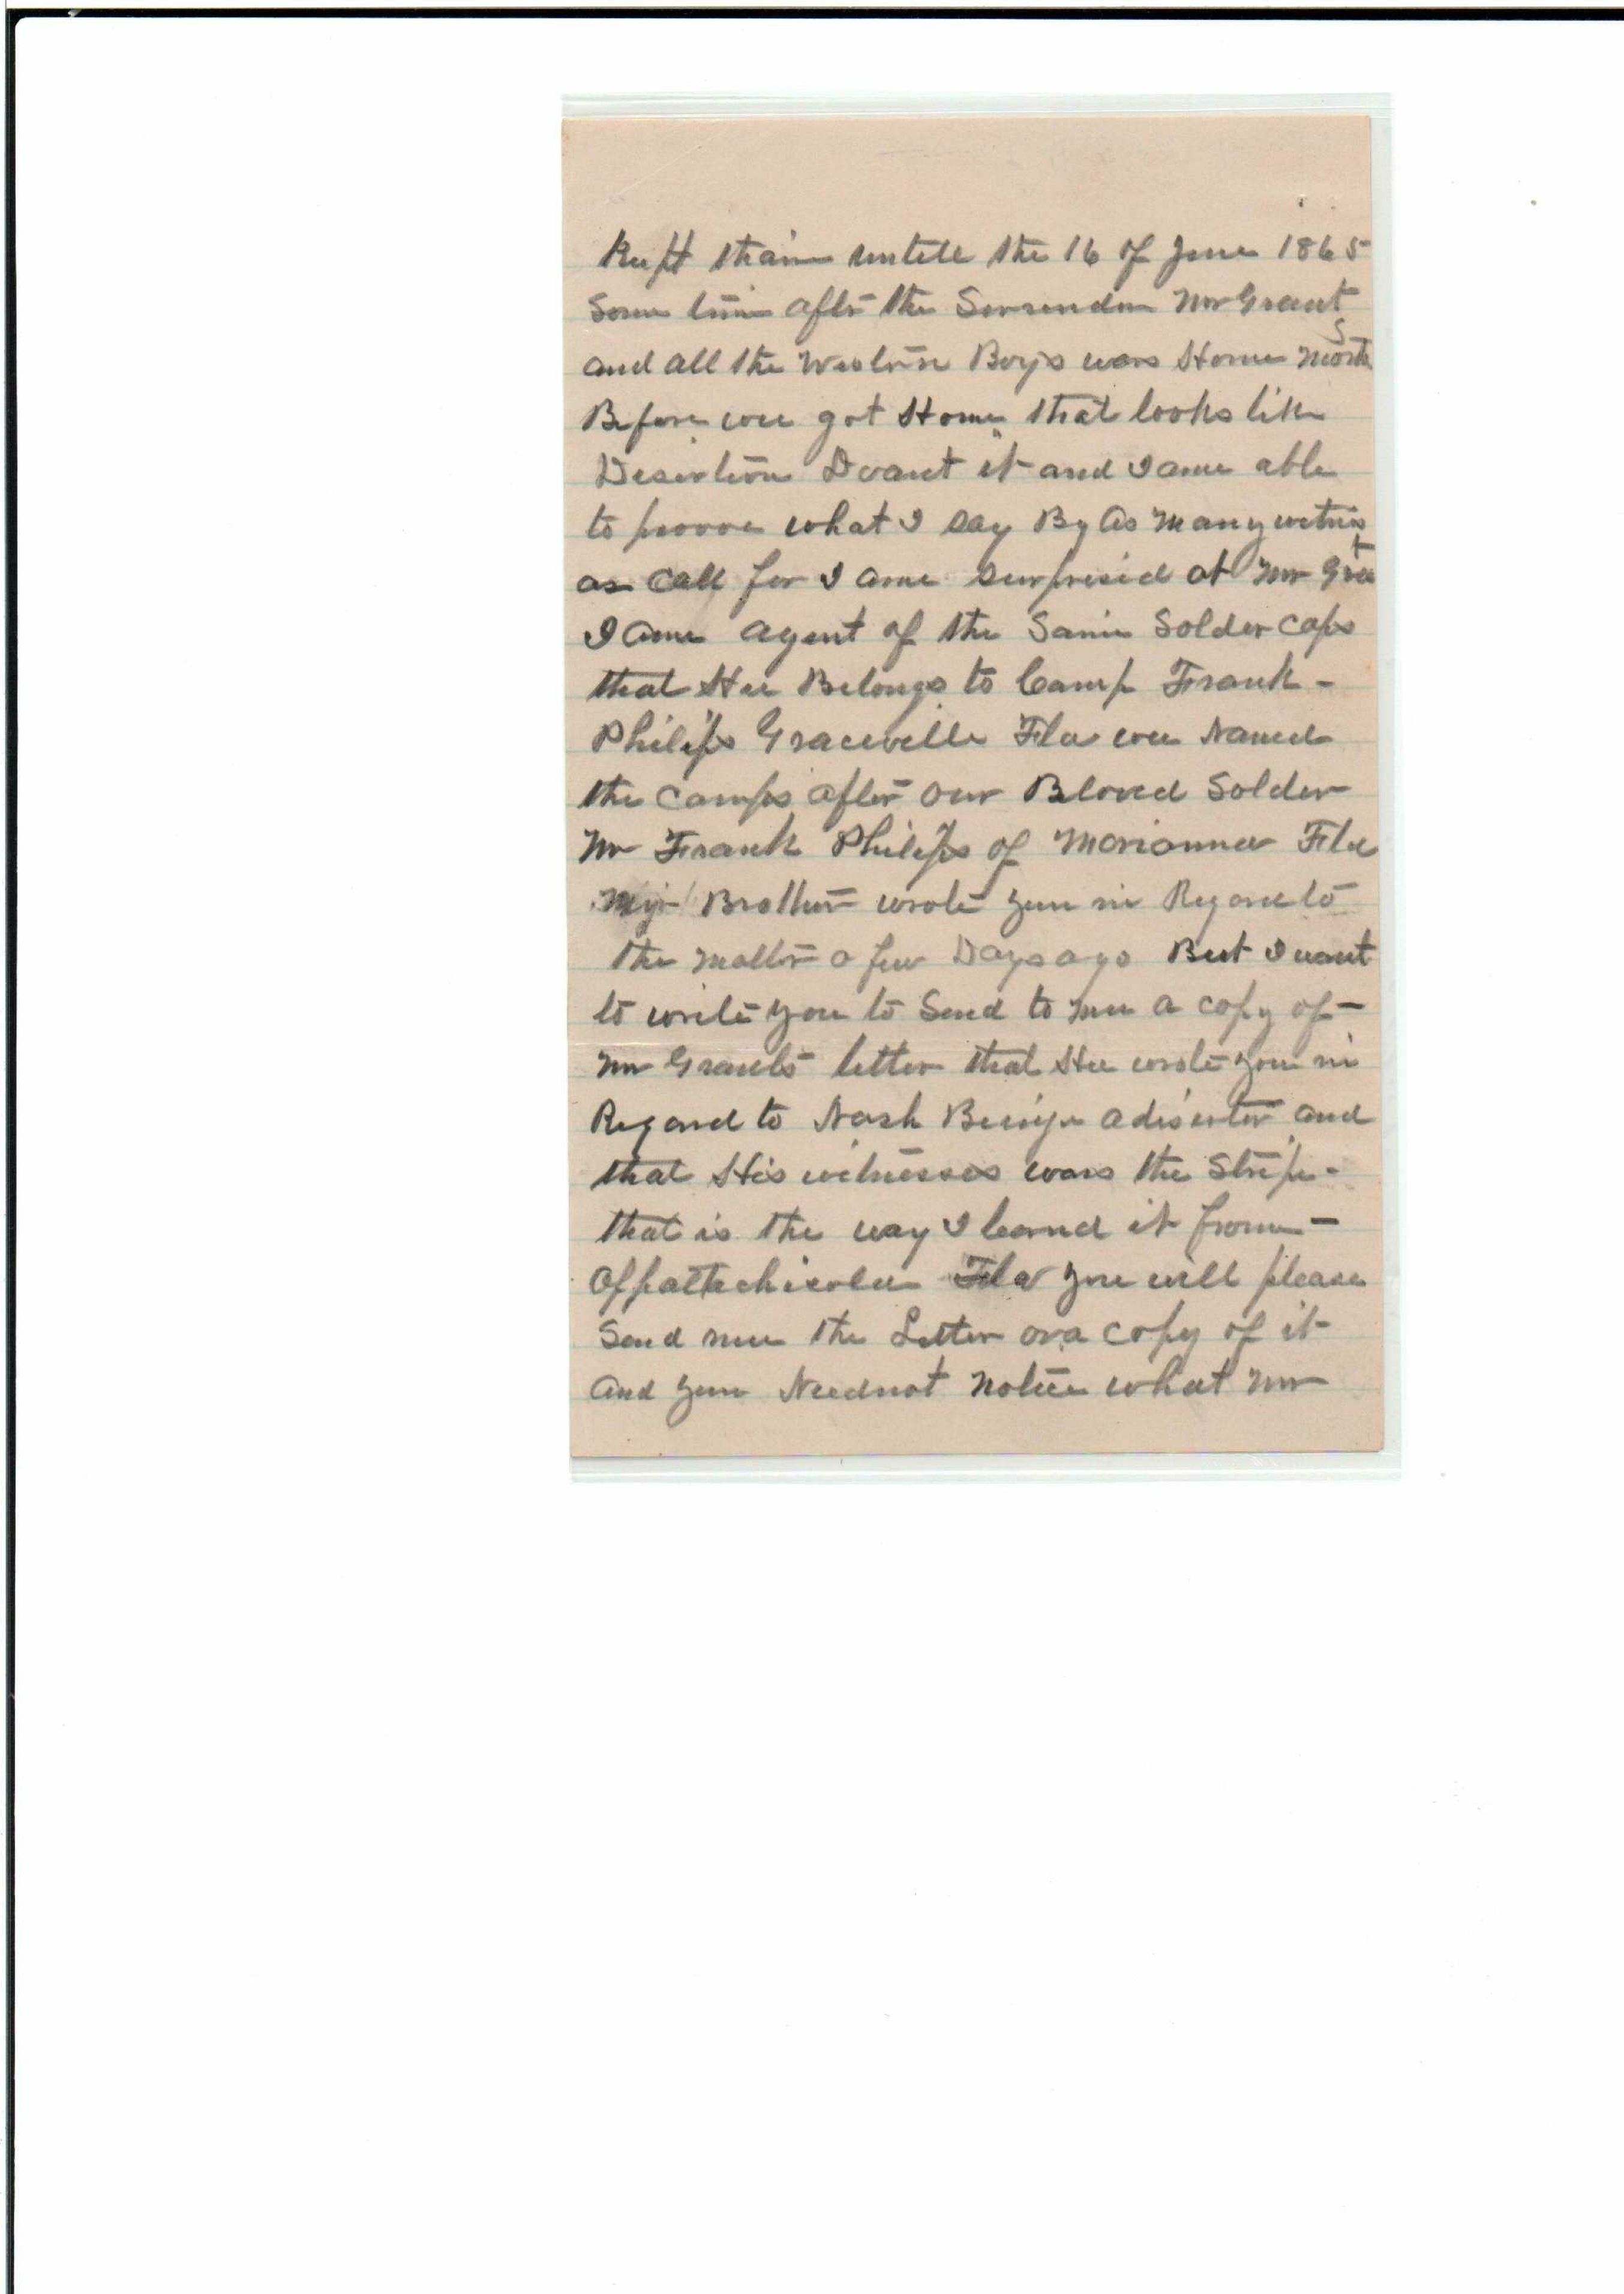 Kept thair untell the 16 of June 1865
Some time after the Surrender Mr Grant
and all the Western Boys was Home Monts
Before wee got Home that looks like
Desertion Dont it and I ame able
to proove what I say By As Many witnis
as call for I ame surprised at Mr Grat
I ame agent of the Same Solder Caps
that Hee Belongs to Camp Frank -
Philips Graceville Fla wee Named
the Camps after our Beloved Solder
Mr Frank Philips of Marianna Fla
My Brother wrote you in Regard to
the matter a few Days ago But I want
to write you to Send to mee a copy of -
Mr Grants letter that Hee wrote you in
Regard to Nash Being a diserter and
that His witnesses was the Stripe -
that is the way I learnd it from -
Appattachicola Fla you will please
Send mee the Letter or a copy of it
And you Neednot Notice what Mr